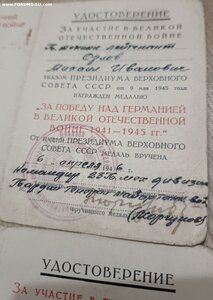 FORUMS-SU.COM
УДОСТОВЕРЕНИЕ
ЗА УЧАСТИЕ В ВЕЛИКОЙ
ОТЕЧЕСТВЕННОЙ ВОЙНЕ
лейтенант
Орлов
Михаил Иванович
указом ПРЕЗИДИУМА ВЕРХОВНОГО
СОВЕТА СССР от 9 мая 1945 года
НАГРАЖДЕН МЕДАЛЬЮ
"ЗА ПОБЕДУ НАД ГЕРМАНИЕЙ
В ВЕЛИКОЙ ОТЕЧЕСТВЕННОЙ
ВОЙНЕ 1941—1945 гг."
От имени ПРЕЗИДИУМА ВЕРХОВНОГО
СОВЕТА СССР МЕДАЛЬ ВРУЧЕНА
6 апреля 1946
Командир дивизии
Гвардии
вручившего медаль
УДОСТОВЕРЕНИЕ
ЗА УЧАСТИЕ В